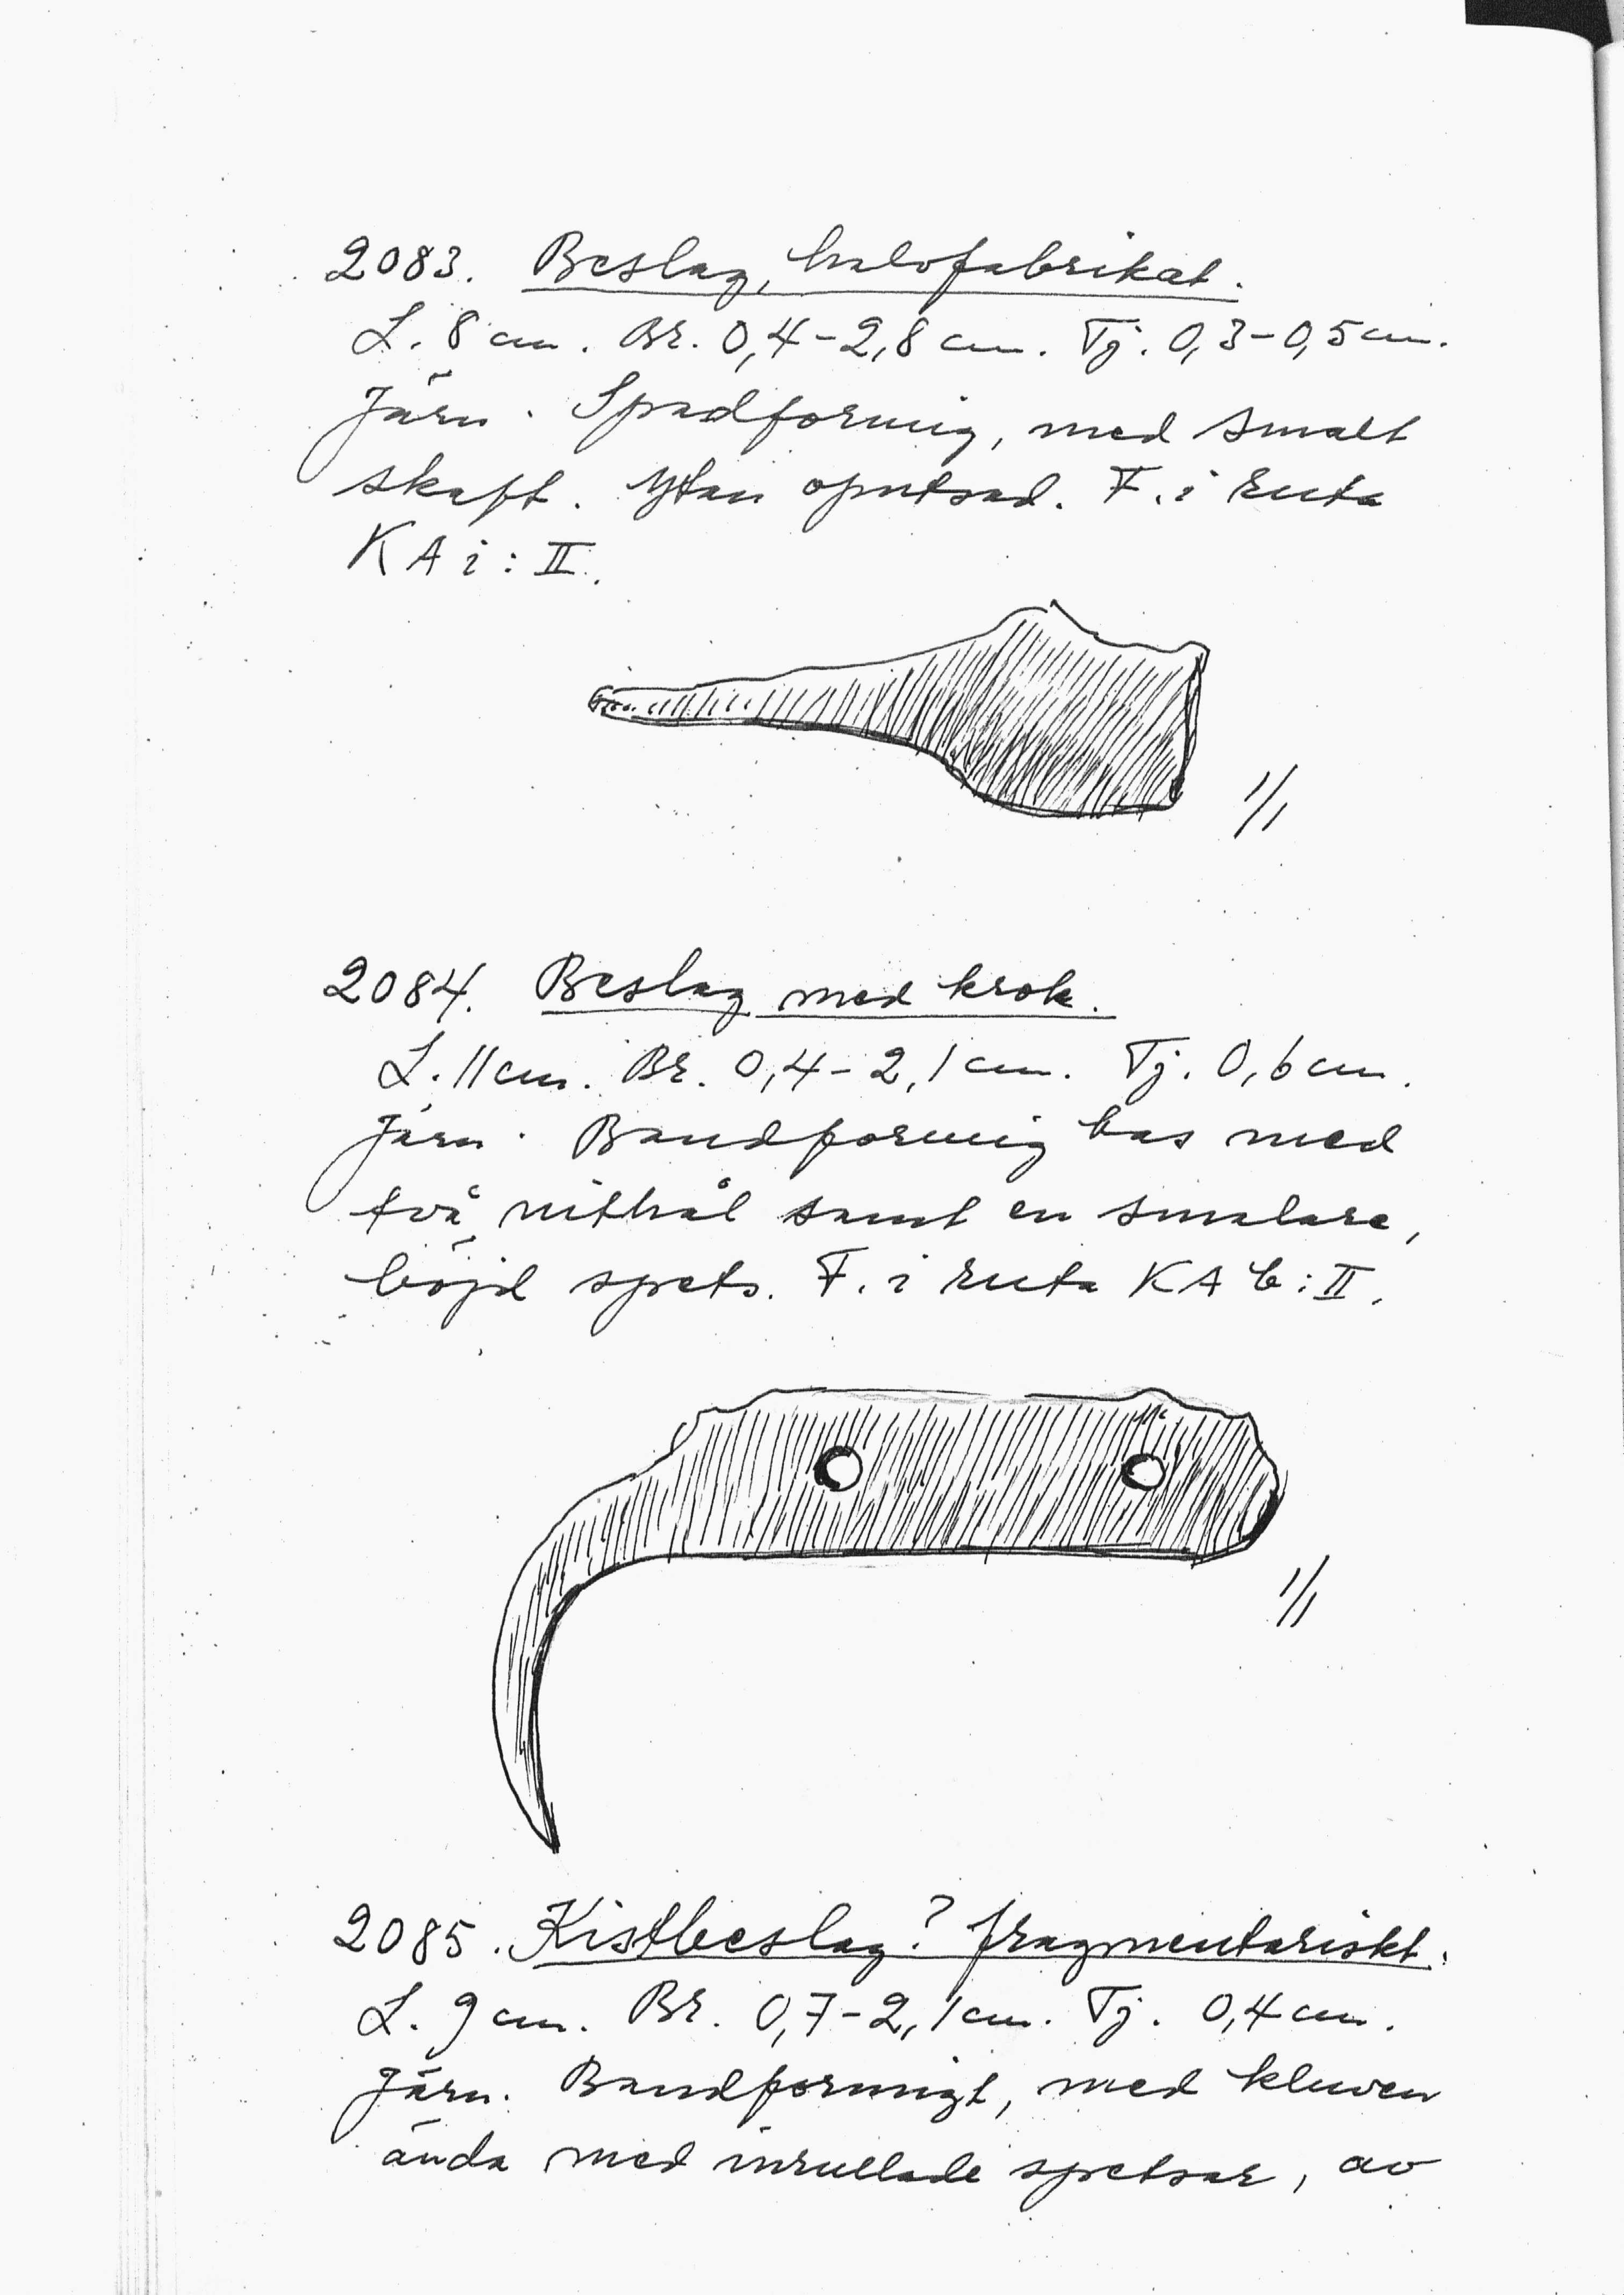 2083. Beslag, halvfabrikat.
L. 8 cm. Br. 0,4-2,8 cm. Tj. 0,3-0,5 cm.
Järn. Spadformig, med smalt
skaft. Ytan oputsad. F. i ruta
KA i: II.
1/1
2084. Beslag med krok.
L. 11 cm. Br. 0,4-2,1 cm. Tj. 0,6 cm.
Järn. Bandformig bas med
två nithål samt en smalare,
böjd spets. F. i ruta KA b: II.
1/1
2085. Kistbeslag? fragmentariskt.
L. 9 cm. Br. 0,7-2,1 cm. Tj. 0,4 cm.
Järn. Bandformigt, med kluven
ända med inrullade spetsar, av